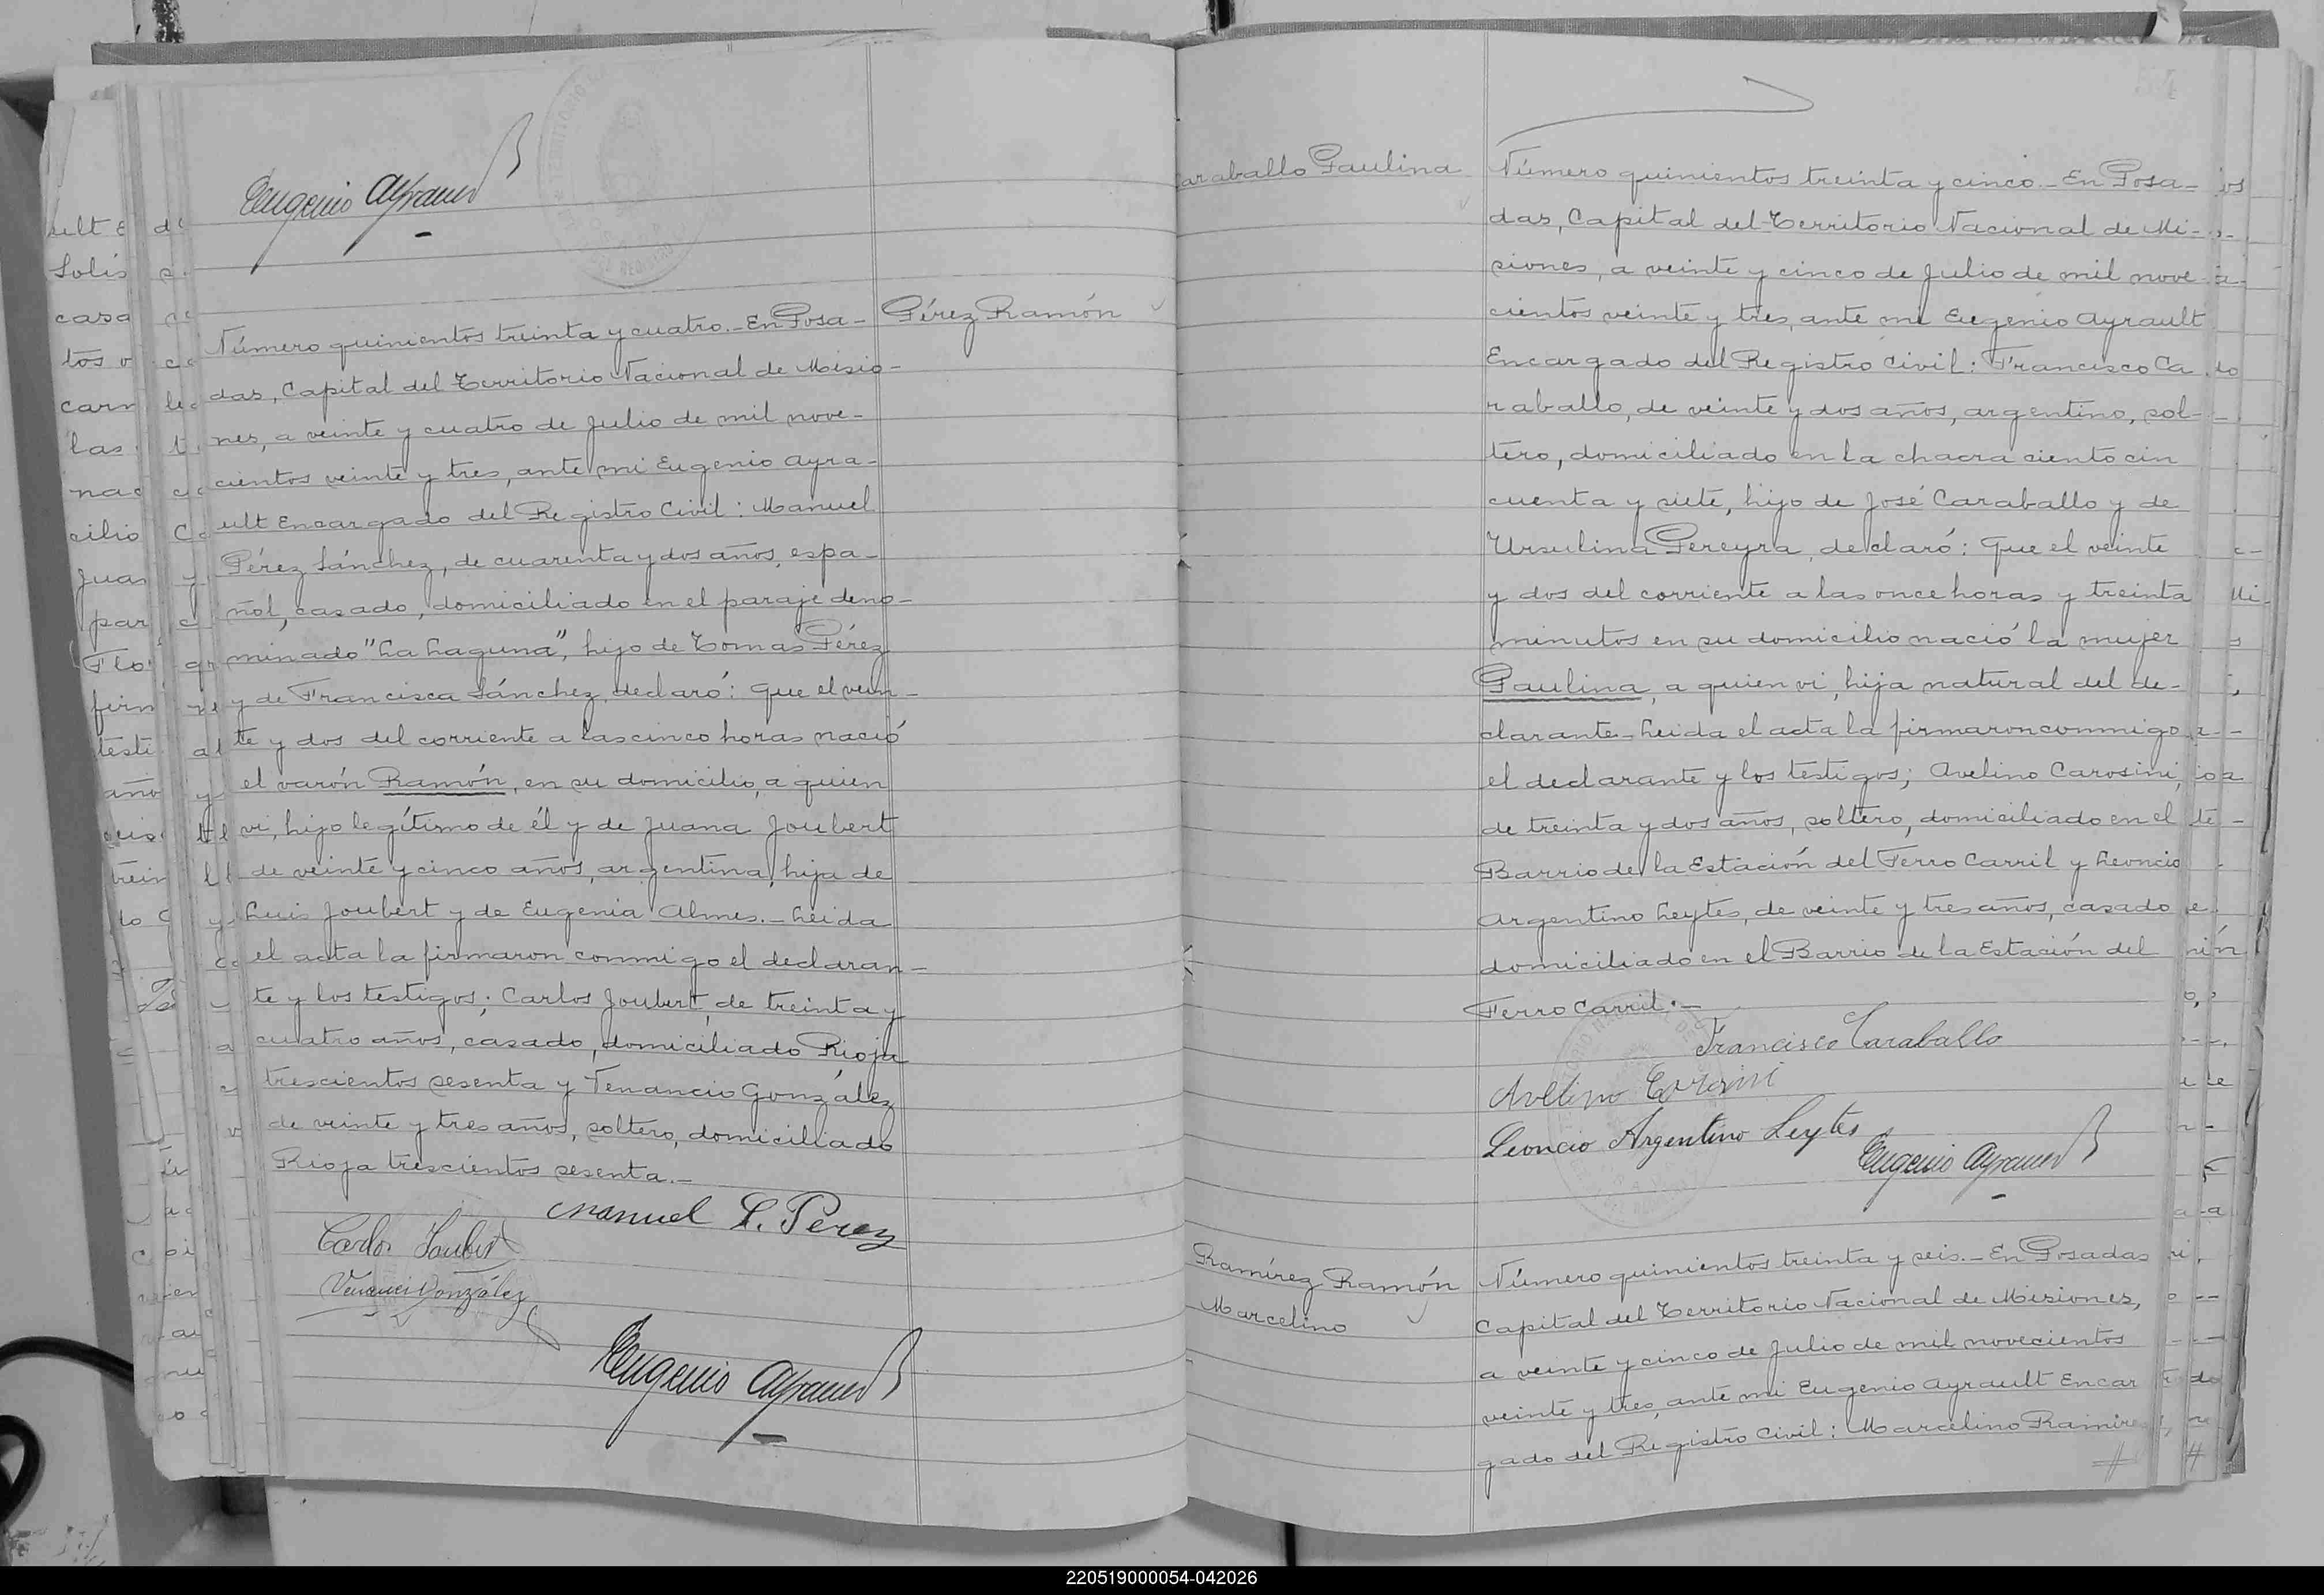 Eugenio Ayrault
Pérez Ramón
Número quinientos treinta y cuatro.- En Posa-
das, Capital del Territorio Nacional de Misio-
nes, a veinte y cuatro de Julio de mil nove-
cientos veinte y tres, ante mi Eugenio Ayra-
ult Encargado del Registro Civil: Manuel
Pérez Sánchez, de cuarenta y dos años, espa-
ñol, casado, domiciliado en el paraje deno-
minado "La Laguna", hijo de Tomas Pérez
y de Francisca Sánchez, declaró: Que el vein-
te y dos del corriente a las cinco horas nació
el varón Ramón, en su domicilio, a quien
vi, hijo legítimo de él y de Juana Joubert
de veinte y cinco años, argentina, hija de
Luis Joubert y de Eugenia Almes.- Leida
el acta la firmaron conmigo el declaran-
te y los testigos; Carlos Joubert, de treinta y
cuatro años, casado, domiciliado Rioja
trescientos sesenta y Venancio González
de veinte y tres años, soltero, domiciliado
Rioja trescientos sesenta.-
Manuel S. Perez
Carlos Joubert
Venancio González
Eugenio Ayrault
Caraballo Paulina
Número quinientos treinta y cinco.- En Posa-
das, Capital del Territorio Nacional de Mi-
siones, a veinte y cinco de Julio de mil nove
cientos veinte y tres, ante mi Eugenio Ayrault
Encargado del Registro Civil: Francisco Ca
raballo, de veinte y dos años, argentino, sol-
tero, domiciliado en la chacra ciento cin
cuenta y siete, hijo de José Caraballo y de
Ursulina Pereyra, declaró: Que el veinte
y dos del corriente a las once horas y treinta
minutos en su domicilio nació la mujer
Paulina, a quien vi, hija natural del de-
clarante.- Leida el acta la firmaron conmigo
el declarante y los testigos; Avelino Carosini,
de treinta y dos años, soltero, domiciliado en el
Barrio de la Estación del Ferro Carril y Leoncio
Argentino Leytes, de veinte y tres años, casado
domiciliado en el Barrio de la Estación del
Ferro Carril.-
Francisco Caraballo
Avelino Carosini
Leoncio Argentino Leytes
Eugenio Ayrault
Ramírez Ramón
Marcelino
Número quinientos treinta y seis.- En Posadas
Capital del Territorio Nacional de Misiones,
a veinte y cinco de Julio de mil novecientos
veinte y tres, ante mi Eugenio Ayrault Encar
gado del Registro Civil: Marcelino Ramirez
220519000054-042026